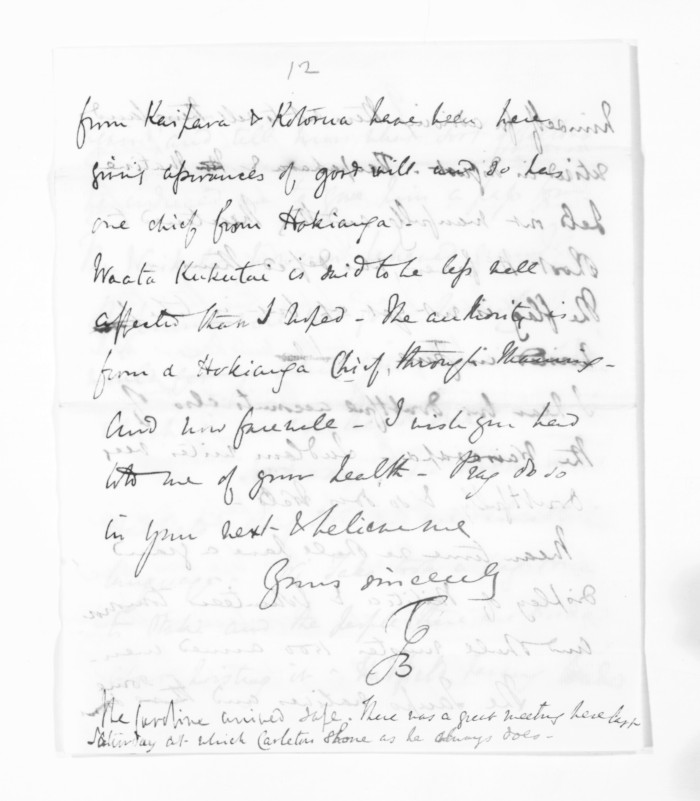 12
from Kaipara & Rotorua have been here
giving assurances of good will. and so has
one chief from Hokianga -
Waata Kukutai is said to be less well
affected than I hoped - The authority is
from a Hokianga Chief, through
And now farewell - I wish you had
told me of your health - Pray do so
in your next & believe me
Yours sincerely
TGB
The Caroline arrived safe. There was a great meeting here last
Saturday at which Carleton shone as he always does -